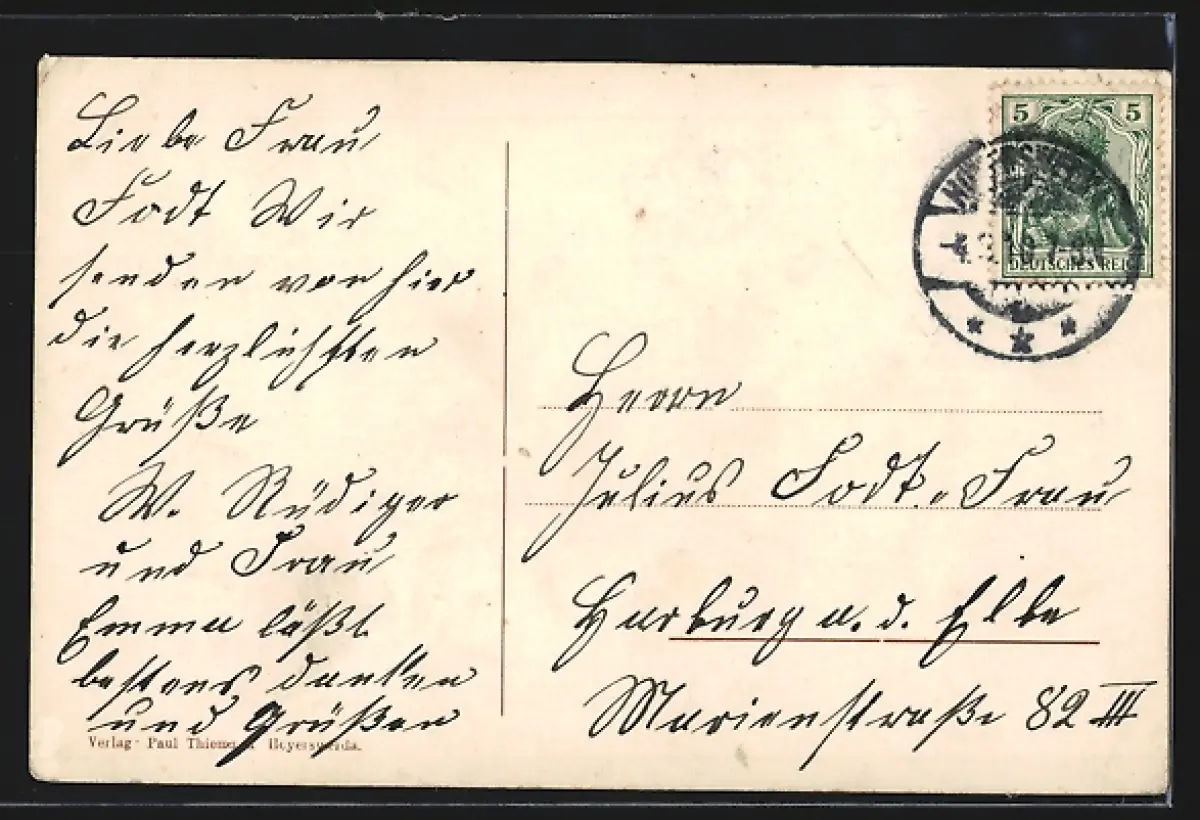 Liebe Frau
Fodt Wir
senden von hier
die herzlichsten
Grüße
W. Rüdiger
und Frau
Emma läßt
bestens danken
und Grüßen
Verlag Paul Thieme Hoyerswerda.
5 5
DEUTSCHES REICH
Herrn
Julius Fodt u. Frau
Harburg a. d. Elbe
Marienstraße 82 III